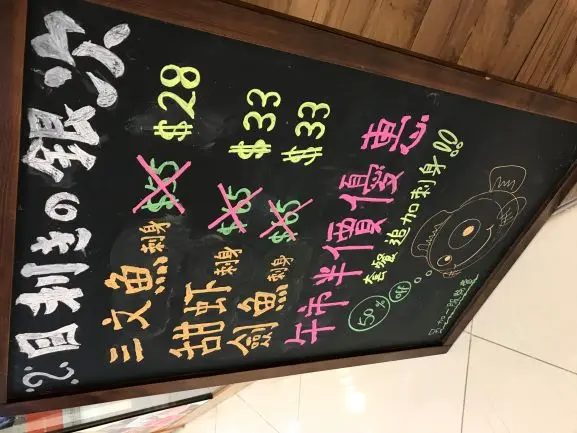 目利きの銀次
三文魚刺身 $55 $28
甜虾刺身 $65 $33
劍魚刺身 $65 $33
午市半價優惠
50% off
套餐追加刺身!!